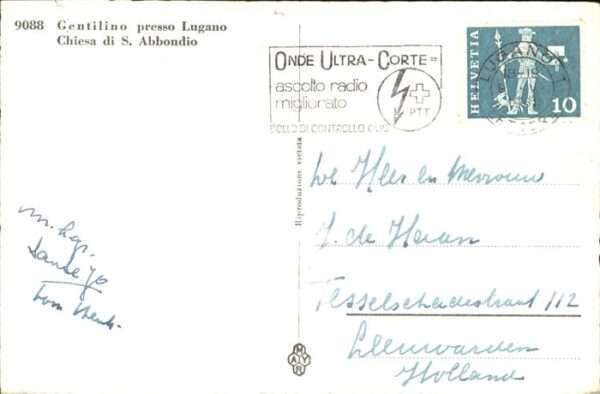 9088 Gentilino presso Lugano
Chiesa di S. Abbondio
ONDE ULTRA-CORTE =
ascolto radio
migliorato
PTT
HELVETIA
10
LUGANO 1
Riproduzione vietata
de Heer en Mevrouw
J. de Haan
Tesselschadestraat 112
Leeuwarden
Holland
m. h. gr.
Tom
MAYR